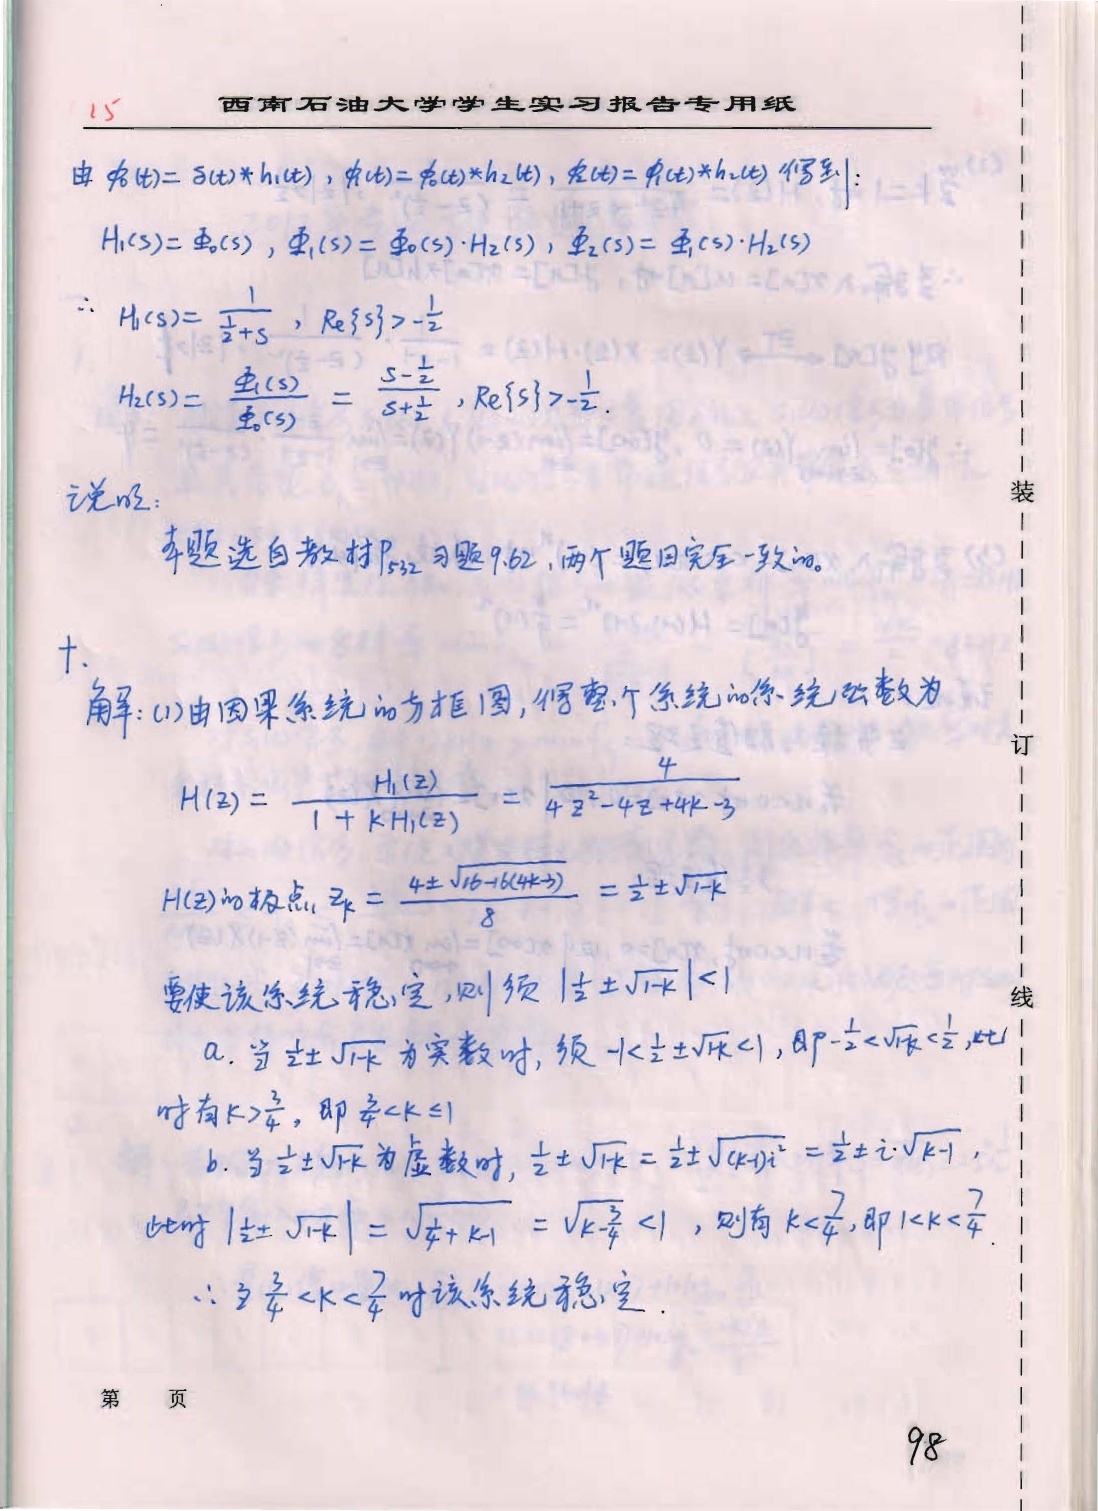 15
西南石油大学学生实习报告专用纸
由 φ₀(t)=δ(t)*h₁(t)，φ₁(t)=φ₀(t)*h₂(t)，φ₂(t)=φ₁(t)*h₂(t) 得到:
H₁(s)=Φ₀(s)，Φ₁(s)=Φ₀(s)·H₂(s)，Φ₂(s)=Φ₁(s)·H₂(s)
∴ H₁(s)= 1/(1/2+s)，Re{s}>-1/2
H₂(s)= Φ₁(s)/Φ₀(s) = (s-1/2)/(s+1/2)，Re{s}>-1/2.
说明:
本题选自教材P₅₃₂习题9.62，两个题目完全一致的。
十.
解:(1)由因果系统的方框图,得整个系统的系统函数为
H(z)= H₁(z)/(1+KH₁(z)) = 4/(4z²-4z+4K-3)
H(z)的极点 z_k = (4±√(16-16(4K-3)))/8 = 1/2±√(1-K)
要使该系统稳定,则须 |1/2±√(1-K)|<1
a. 当 1/2±√(1-K) 为实数时, 须 -1<1/2±√(1-K)<1, 即 -1/2<√(1-K)<1/2, 此
时有K>3/4, 即 3/4<K≤1
b. 当 1/2±√(1-K) 为虚数时, 1/2±√(1-K) = 1/2±√((K-1)i²) = 1/2±i·√(K-1),
此时 |1/2±√(1-K)| = √(1/4+K-1) = √(K-3/4) <1, 则有 K<7/4, 即 1<K<7/4.
∴当 3/4<K<7/4 时该系统稳定.
第 页
98
装
订
线